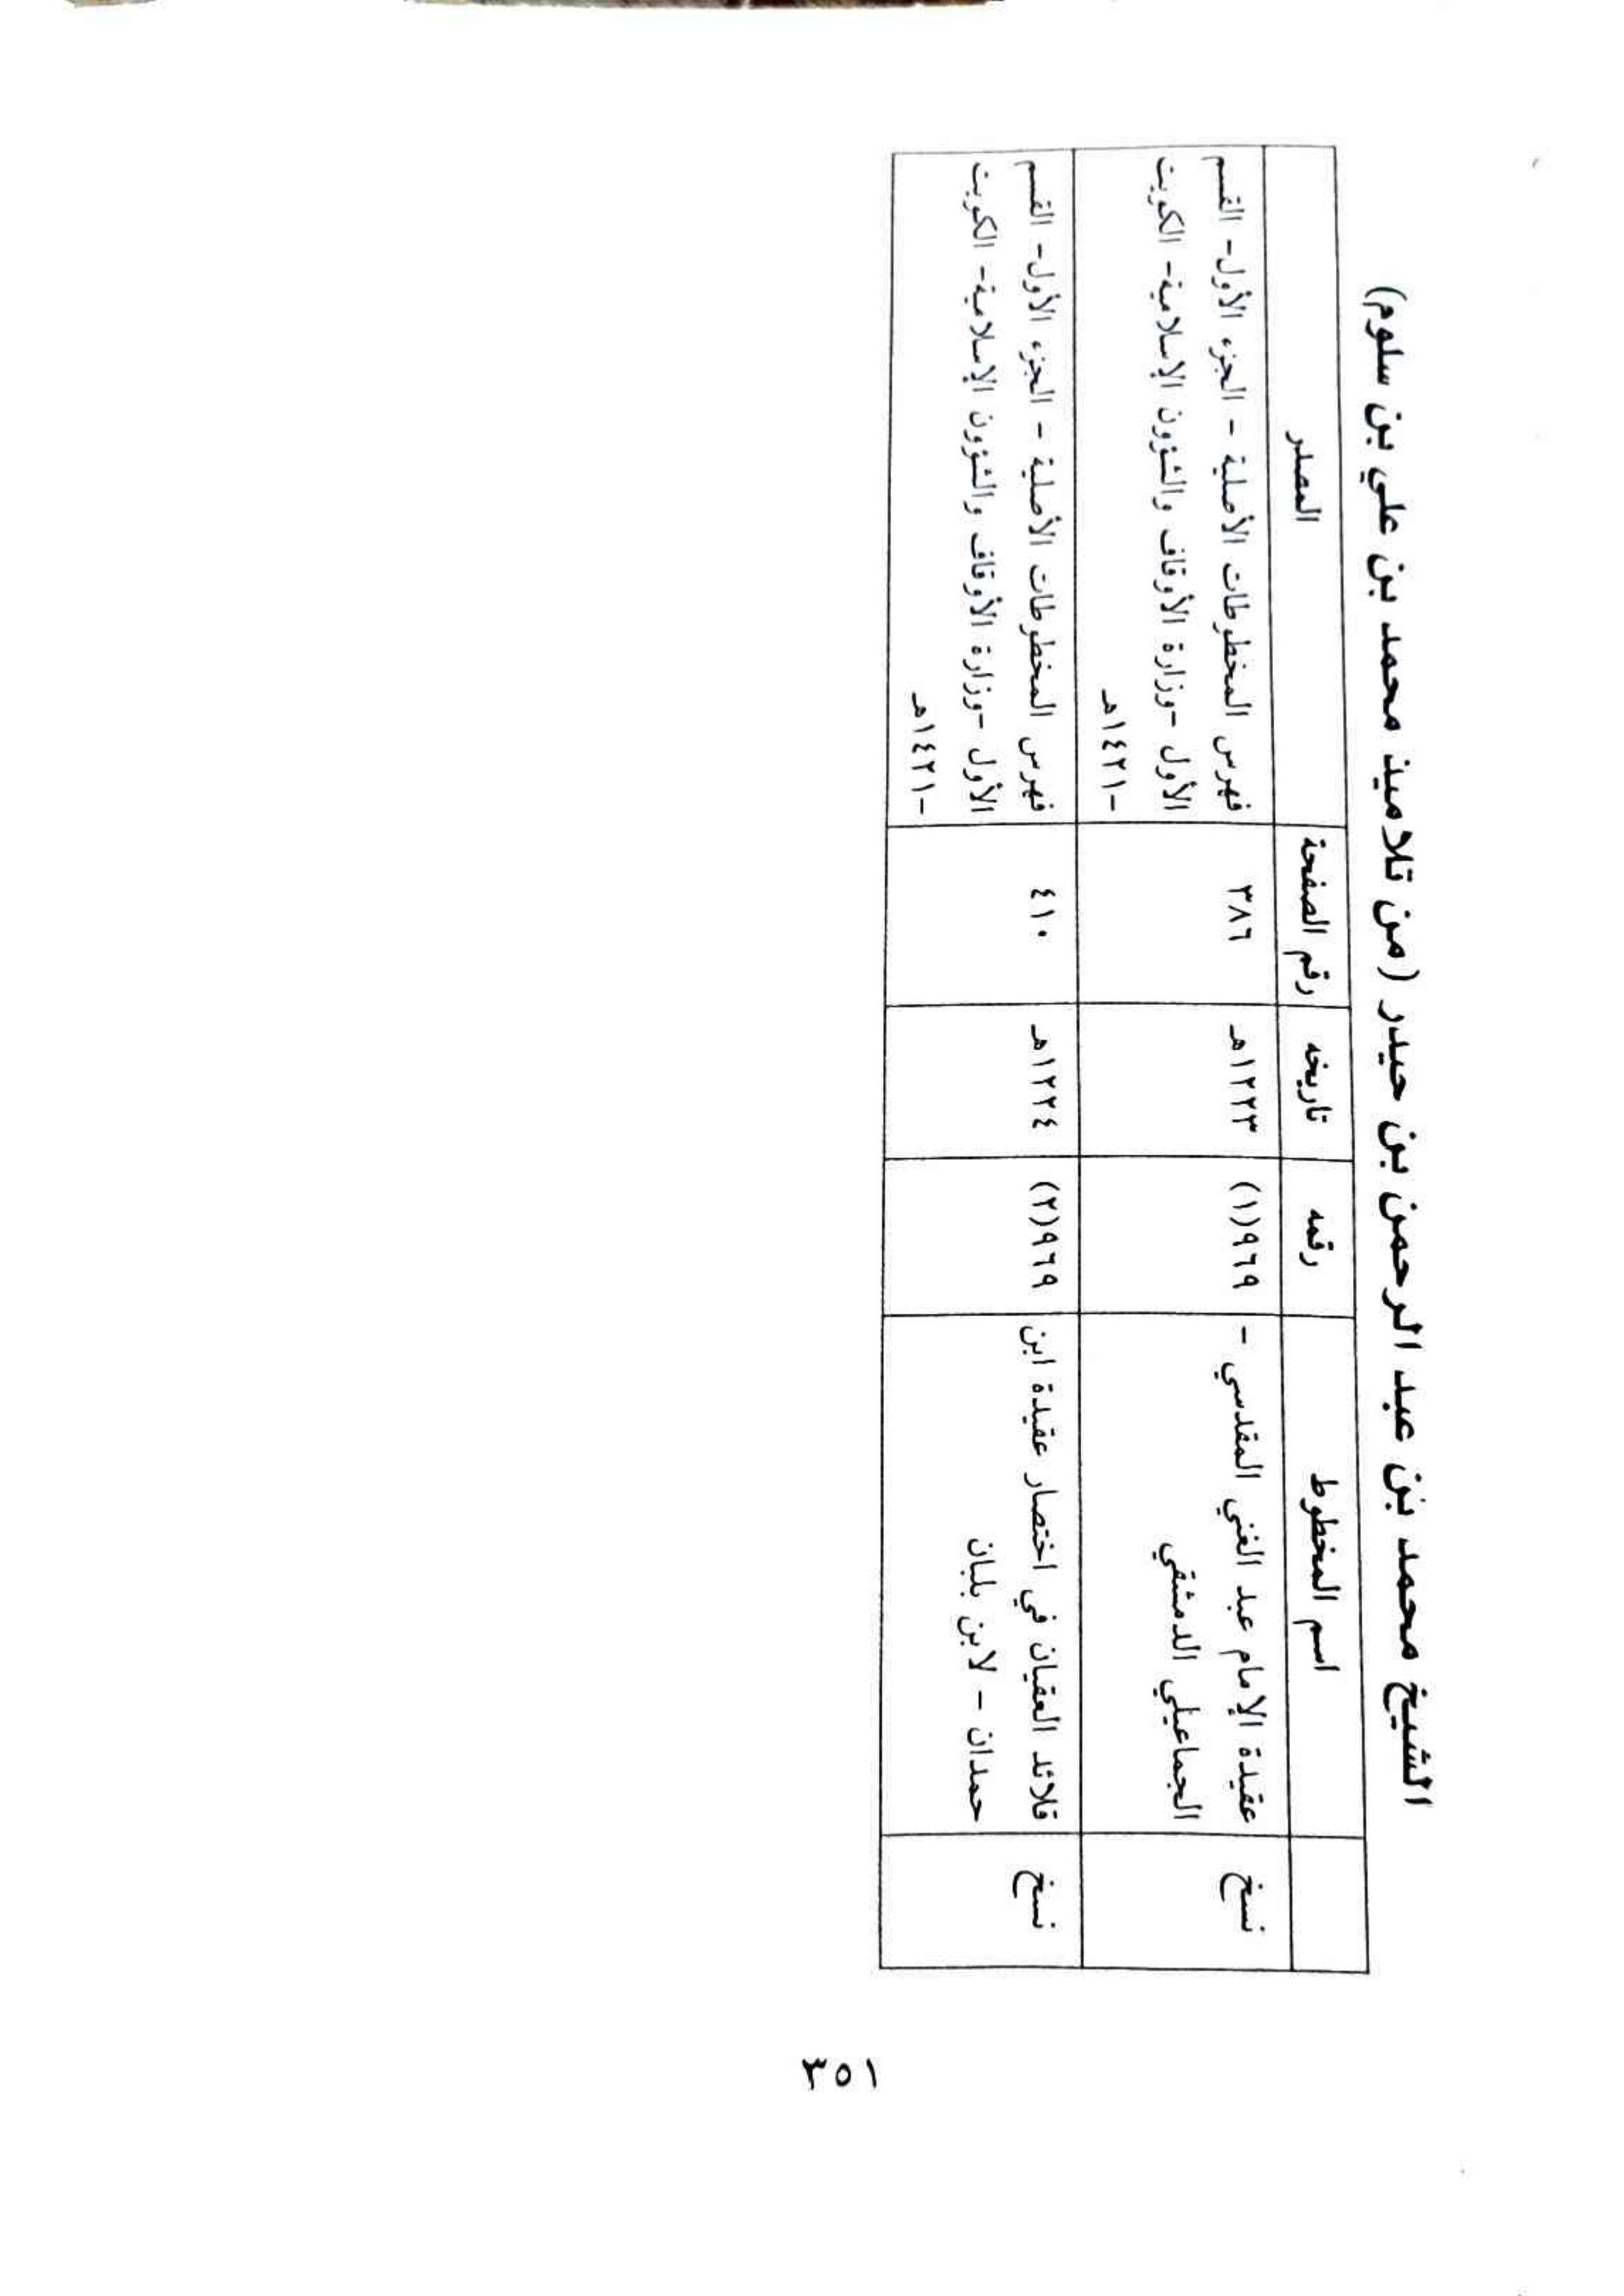 الشيخ محمد بن عبد الرحمن بن حيدر (من تلاميذ محمد بن علي بن سلوم)
اسم المخطوط | رقمه | تاريخه | رقم الصفحة | المصدر
نسخ | عقيدة الإمام عبد الغني المقدسي – | ٩٦٩(١) | ١٢٢٣هـ | ٣٨٦ | فهرس المخطوطات الأصلية – الجزء الأول- القسم
الجماعيلي الدمشقي | الأول -وزارة الأوقاف والشؤون الإسلامية- الكويت
-١٤٢١هـ
نسخ | قلائد العقيان في اختصار عقيدة ابن | ٩٦٩(٢) | ١٢٢٤هـ | ٤١٠ | فهرس المخطوطات الأصلية – الجزء الأول- القسم
حمدان – لابن بلبان | الأول -وزارة الأوقاف والشؤون الإسلامية- الكويت
-١٤٢١هـ
٣٥١